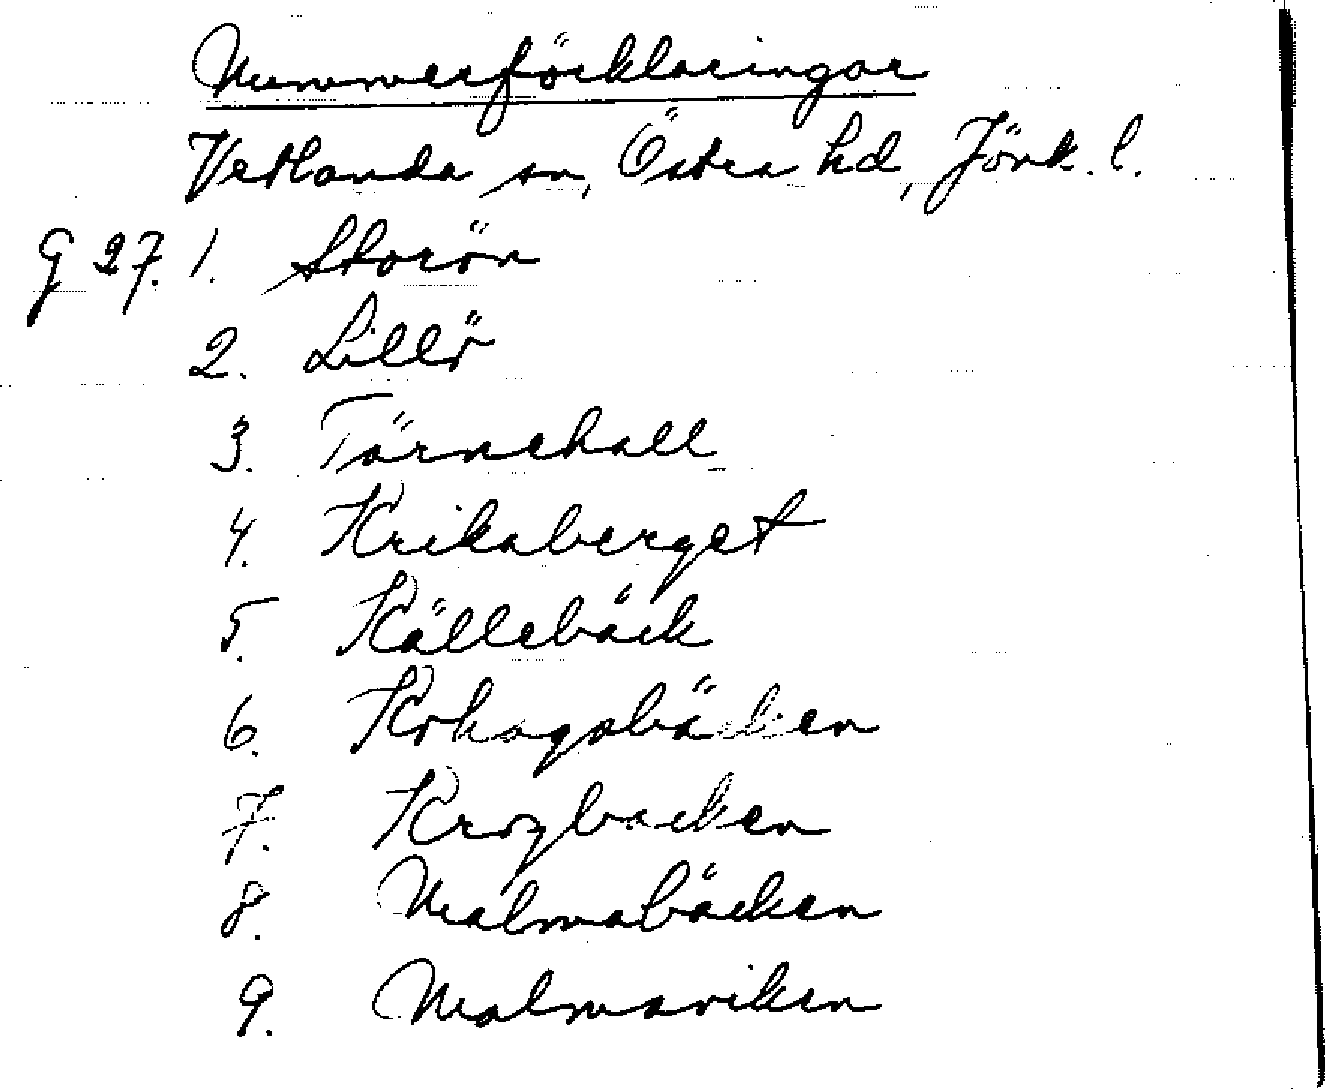 Nummerförklaringar
Vetlanda sn, Östra hd, Jönk. l.
G 27. 1. Storön
2. Lillö
3. Törnehall
4. Krikaberget
5. Källebäck
6. Krhagsbäcken
7. Krogbacken
8. Malmabäcken
9. Malmaviken